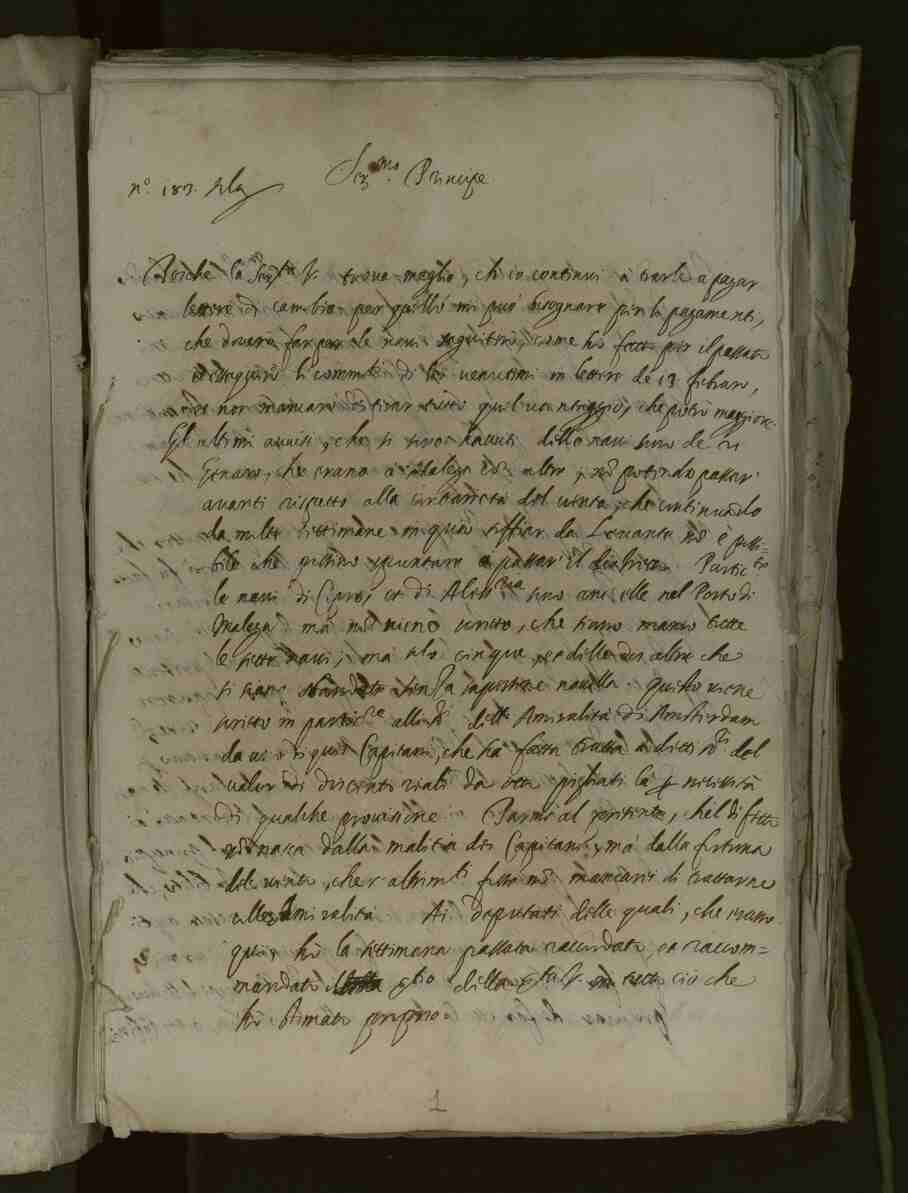 n.º 183. Sola
Ser.mo Principe
Poiche la Ser.tà V. trova meglio, ch'io continui à trarle a pagar
lettere di cambio per quello mi può bisognare per li pagamenti,
che doverò far per le navi seguitemi, come hò fatto per il passato
esseguirò li commti di lei venutimi in lettere de 13 febraro,
ne mancarò di tirar tutto quel vantaggio, che potrò maggiore.
Gl'ultimi avvisi, che si sono havuti delle navi sono de
Genaro, che erano à Malega con altre, nõ potendo passar
avanti rispetto alla contrarietà del vento, che continuando
da molte settimane in quà à soffiar da Levante nõ è possi-
bile che possino spontare a passar il stretto. Partic.te
le navi di Cipro, et di Aless.ria sono anc'elle nel Porto di
Malega mà nõ vieno scritto, che siano manco tutte
le sette navi; mà solo cinque, et delle doi altre che
si siano sbandate senza sapersene novella. questo viene
scritto in partic.re alli dell'Amiralità di Amsterdam
da uno di quei Capitani, che hà fatto tratta à detti del
valor di doicento reali da otto pigliati là per necessità
di qualche provisione. Parmi al presente, ch'el difetto
nõ nasca dalla malitia dei Capitani, mà dalla fortuna
del vento, che altrimenti fosse nõ mancarei di trattarne
all'Amiralità. Ai deputati delle quali, che erano
quì, hò la settimana passata raccordato, et raccom-
mandato il serv.tio della Ser.tà V. in tutto ciò che
hò stimato proprio
1